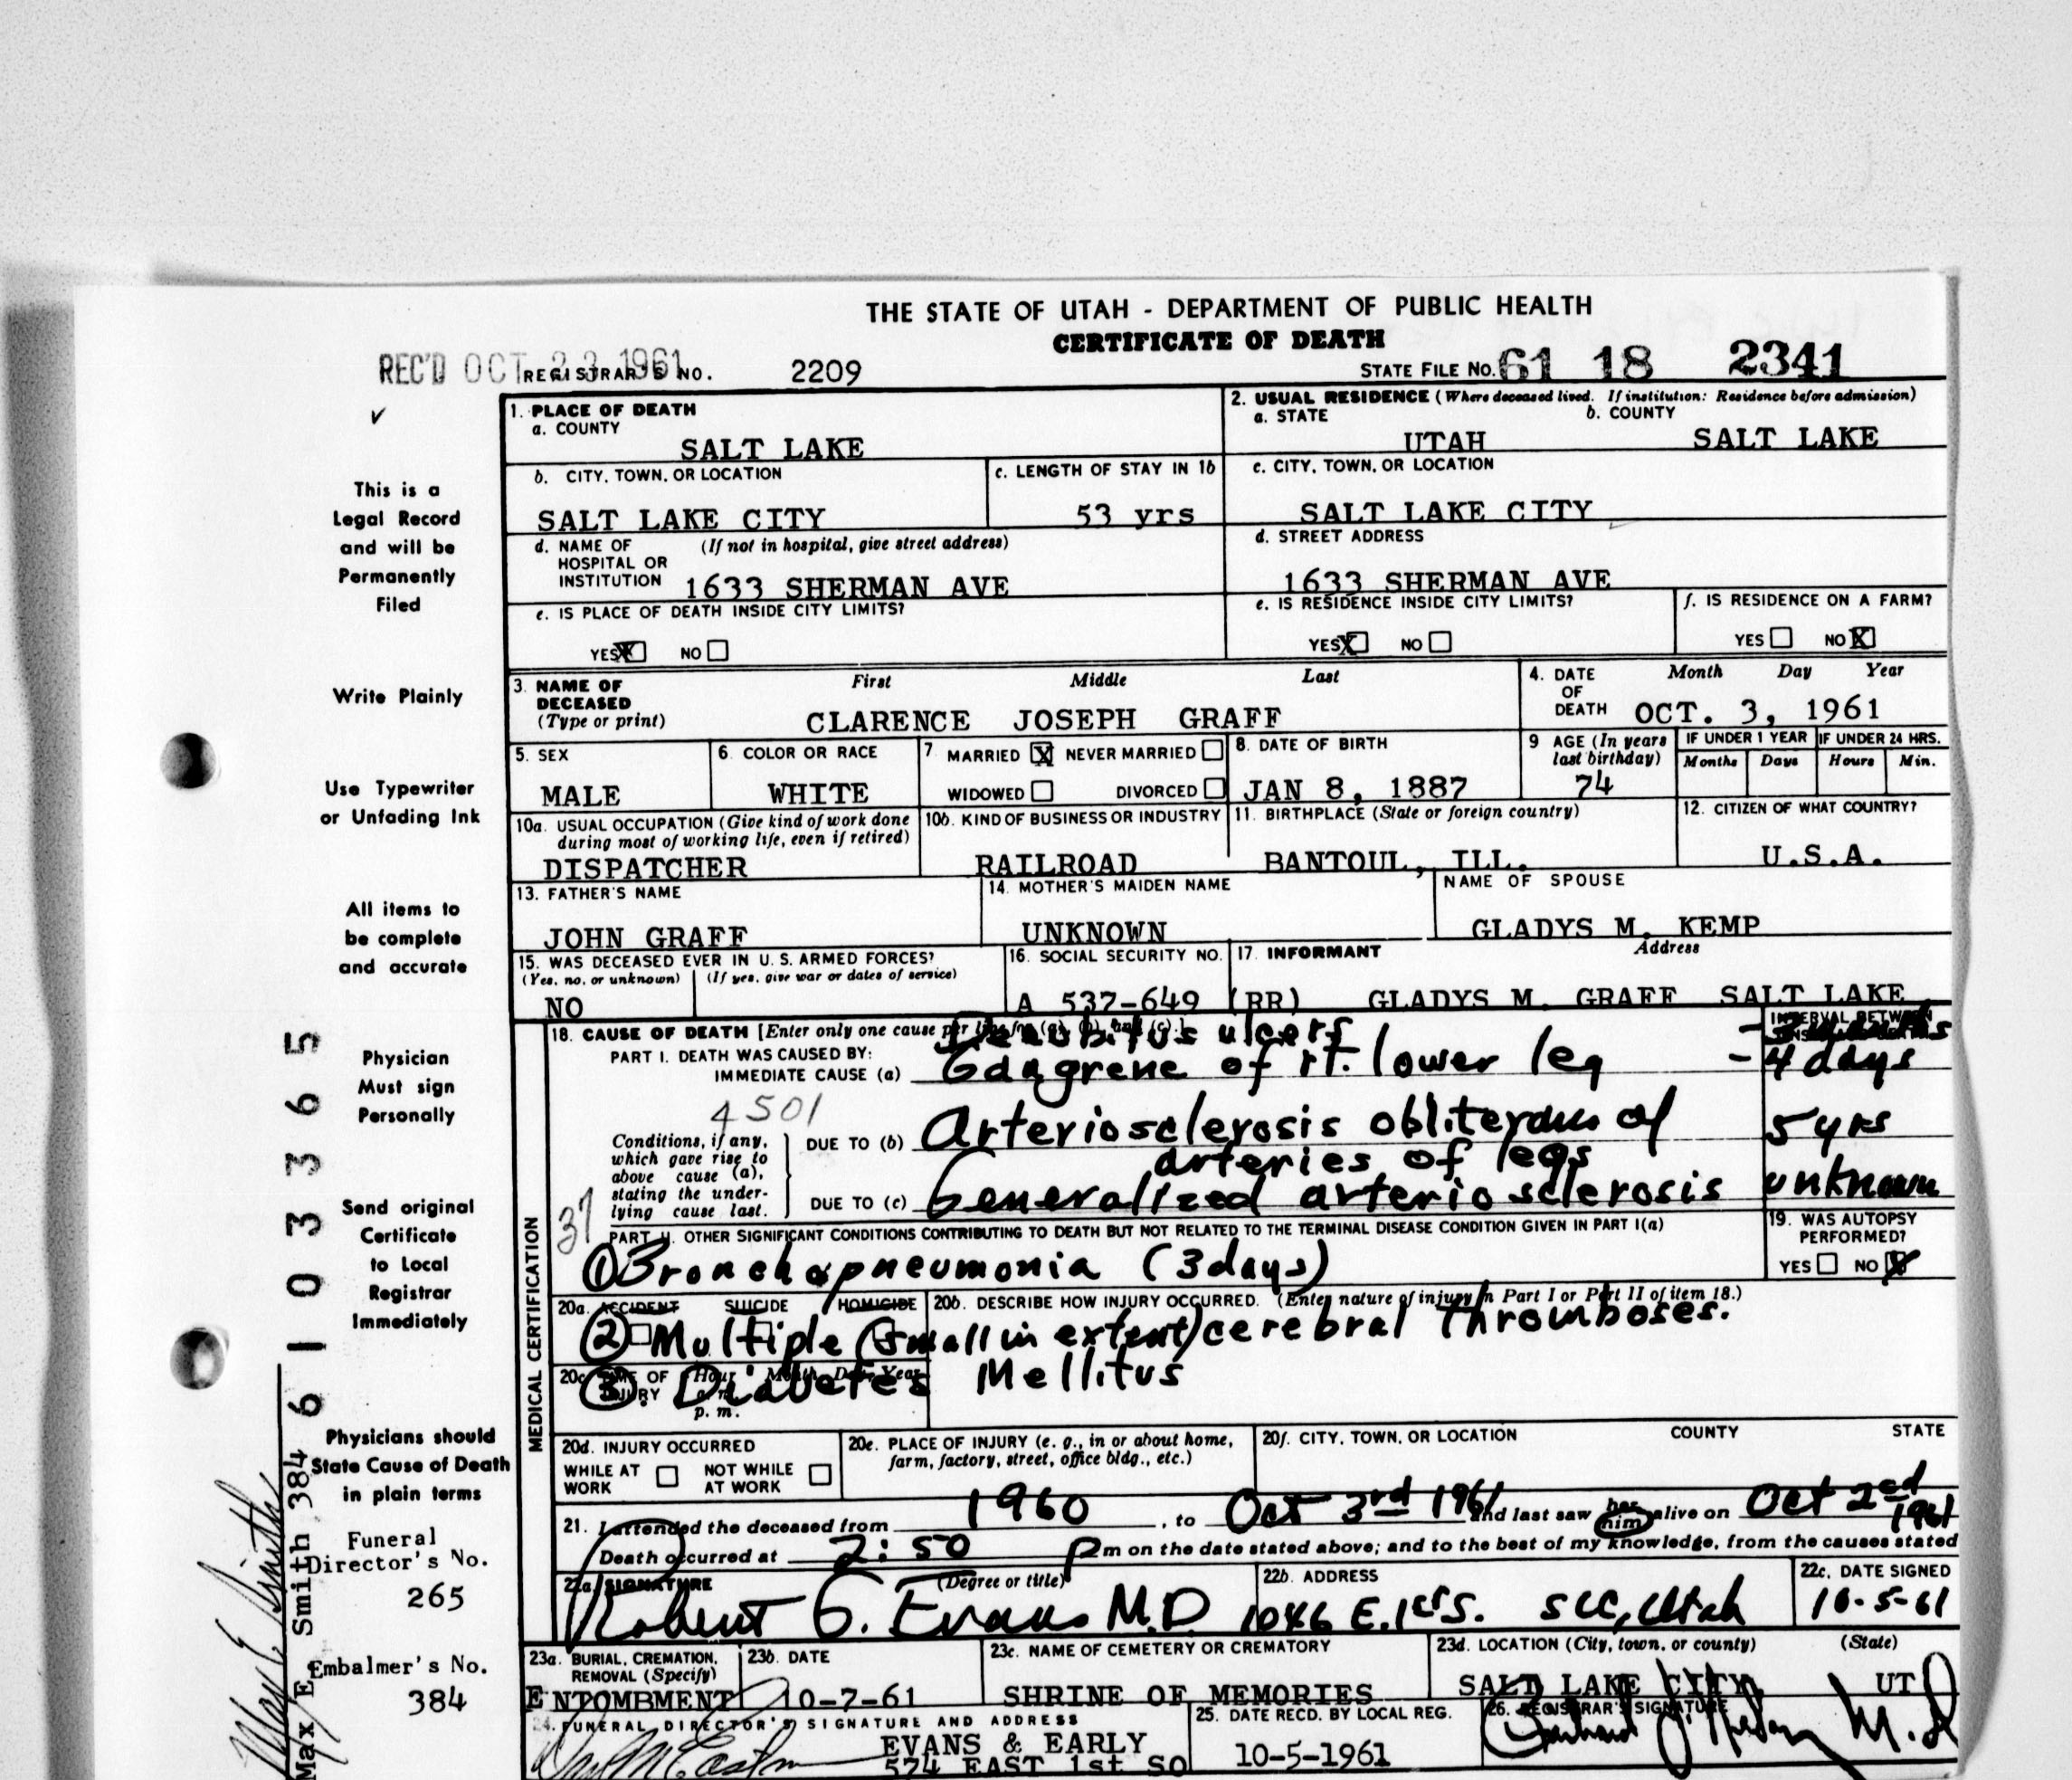 THE STATE OF UTAH - DEPARTMENT OF PUBLIC HEALTH
CERTIFICATE OF DEATH
REC'D OCT 23 1961 REGISTRAR'S NO. 2209 STATE FILE NO. 61 18 2341
1. PLACE OF DEATH
a. COUNTY
SALT LAKE
2. USUAL RESIDENCE (Where deceased lived. If institution: Residence before admission)
a. STATE b. COUNTY
UTAH SALT LAKE
b. CITY, TOWN, OR LOCATION
SALT LAKE CITY
c. LENGTH OF STAY IN 1b
53 yrs
c. CITY, TOWN, OR LOCATION
SALT LAKE CITY
d. NAME OF (If not in hospital, give street address)
HOSPITAL OR
INSTITUTION 1633 SHERMAN AVE
d. STREET ADDRESS
1633 SHERMAN AVE
e. IS PLACE OF DEATH INSIDE CITY LIMITS?
YES X NO
e. IS RESIDENCE INSIDE CITY LIMITS?
YES X NO
f. IS RESIDENCE ON A FARM?
YES NO X
3. NAME OF DECEASED (Type or print)
First Middle Last
CLARENCE JOSEPH GRAFF
4. DATE OF DEATH
Month Day Year
OCT. 3, 1961
5. SEX
MALE
6. COLOR OR RACE
WHITE
7. MARRIED X NEVER MARRIED
WIDOWED DIVORCED
8. DATE OF BIRTH
JAN 8, 1887
9 AGE (In years last birthday)
74
IF UNDER 1 YEAR IF UNDER 24 HRS.
Months Days Hours Min.
10a. USUAL OCCUPATION (Give kind of work done
during most of working life, even if retired)
DISPATCHER
10b. KIND OF BUSINESS OR INDUSTRY
RAILROAD
11. BIRTHPLACE (State or foreign country)
BANTOUL, ILL.
12. CITIZEN OF WHAT COUNTRY?
U.S.A.
13. FATHER'S NAME
JOHN GRAFF
14. MOTHER'S MAIDEN NAME
UNKNOWN
NAME OF SPOUSE
GLADYS M. KEMP
15. WAS DECEASED EVER IN U.S. ARMED FORCES?
(Yes, no, or unknown) (If yes, give war or dates of service)
NO
16. SOCIAL SECURITY NO.
A 537-649 (RR)
17. INFORMANT Address
GLADYS M. GRAFF SALT LAKE
18. CAUSE OF DEATH [Enter only one cause per line for (a), (b), and (c).]
Decubitus ulcers
INTERVAL BETWEEN
PART I. DEATH WAS CAUSED BY:
IMMEDIATE CAUSE (a) Gangrene of rt. lower leg - 4 days
4501
Conditions, if any,
which gave rise to
above cause (a),
stating the under-
lying cause last.
DUE TO (b) Arteriosclerosis obliterans of 5 yrs
arteries of legs
DUE TO (c) Generalized arteriosclerosis unknown
37
PART II. OTHER SIGNIFICANT CONDITIONS CONTRIBUTING TO DEATH BUT NOT RELATED TO THE TERMINAL DISEASE CONDITION GIVEN IN PART I(a)
① Bronchopneumonia (3 days)
19. WAS AUTOPSY
PERFORMED?
YES NO X
20a. ACCIDENT SUICIDE HOMICIDE
20b. DESCRIBE HOW INJURY OCCURRED. (Enter nature of injury in Part I or Part II of item 18.)
② Multiple (small in extent) cerebral thromboses.
20c. TIME OF INJURY Hour Month, Day, Year
a. m.
p. m.
③ Diabetes Mellitus
20d. INJURY OCCURRED
WHILE AT WORK NOT WHILE AT WORK
20e. PLACE OF INJURY (e. g., in or about home,
farm, factory, street, office bldg., etc.)
20f. CITY, TOWN, OR LOCATION COUNTY STATE
21. I attended the deceased from 1960, to Oct 3rd 1961 and last saw her him alive on Oct 2nd 1961
Death occurred at 2:50 P m on the date stated above; and to the best of my knowledge, from the causes stated
22a. SIGNATURE (Degree or title)
Robert G. Evans M.D.
22b. ADDRESS
1046 E. 1st S. SLC, Utah
22c. DATE SIGNED
10-5-61
23a. BURIAL, CREMATION,
REMOVAL (Specify)
ENTOMBMENT
23b. DATE
10-7-61
23c. NAME OF CEMETERY OR CREMATORY
SHRINE OF MEMORIES
23d. LOCATION (City, town, or county) (State)
SALT LAKE CITY UT
24. FUNERAL DIRECTOR'S SIGNATURE AND ADDRESS
EVANS & EARLY
574 EAST 1st SO
25. DATE RECD. BY LOCAL REG.
10-5-1961
26. REGISTRAR'S SIGNATURE
M.D.
MEDICAL CERTIFICATION
This is a
Legal Record
and will be
Permanently
Filed
Write Plainly
Use Typewriter
or Unfading Ink
All items to
be complete
and accurate
Physician
Must sign
Personally
Send original
Certificate
to Local
Registrar
Immediately
Physicians should
State Cause of Death
in plain terms
Funeral
Director's No.
265
Embalmer's No.
384
Max E Smith 384 6 1 0 3 3 6 5
Max E Smith